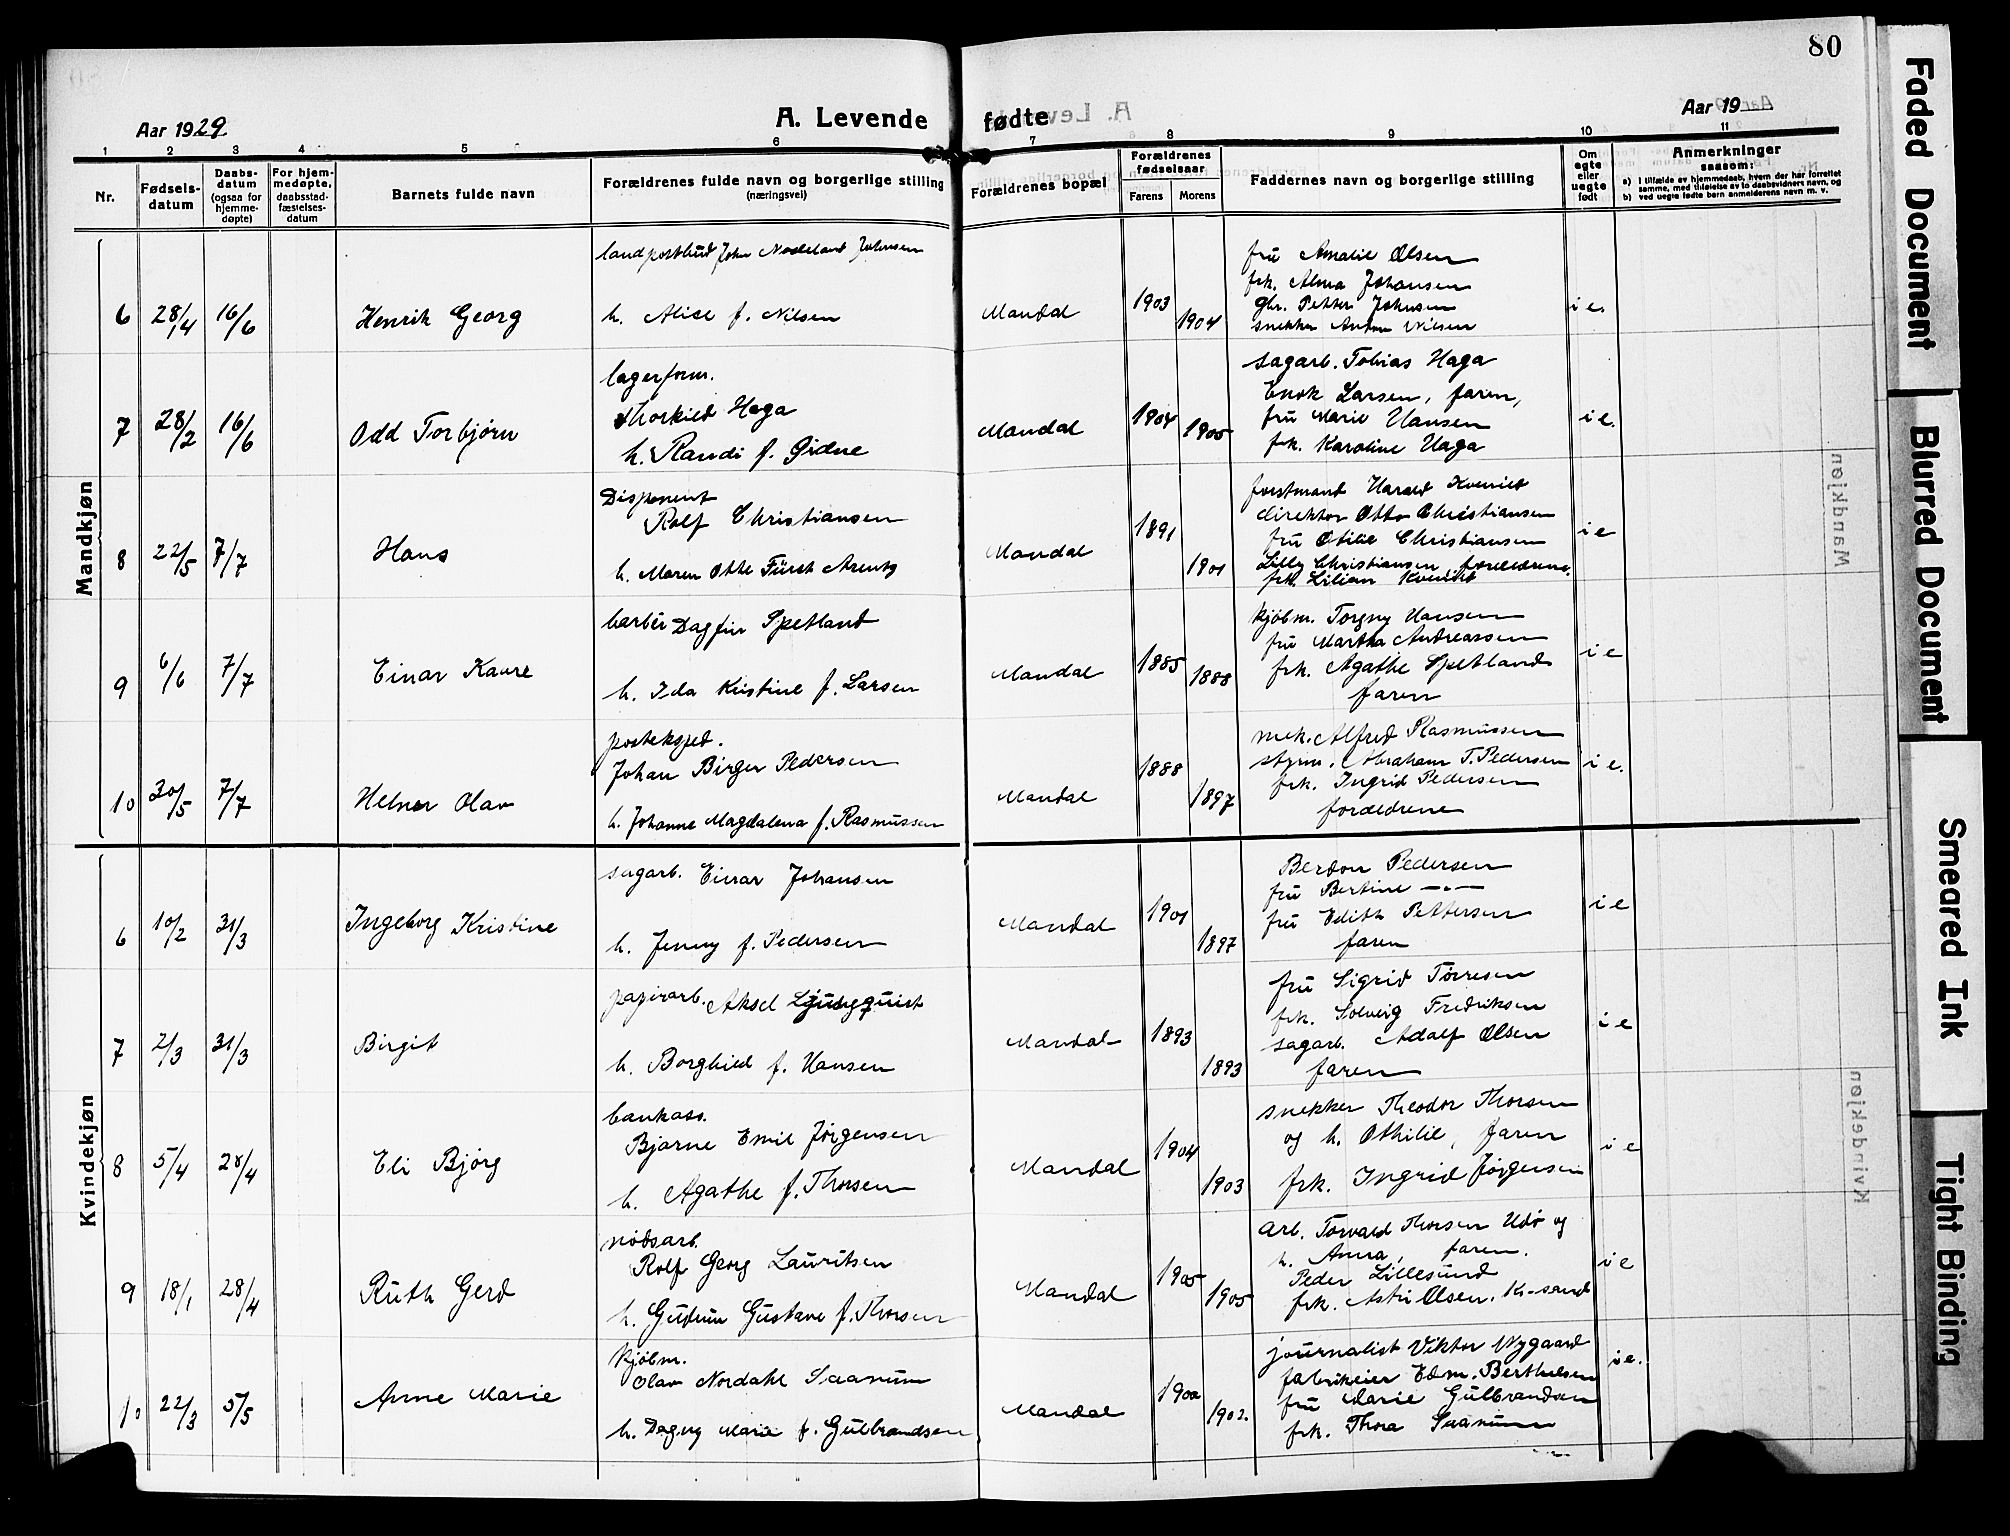 80
Aar 1929
A. Levende fødte
Aar 19
1 2 3 4 5 6 7 8 9 10 11
Nr.
Fødsels-
datum
Daabs-
datum
(ogsaa for
hjemme-
døpte)
For hjem-
medøpte,
daabsstad-
fæstelses-
datum
Barnets fulde navn
Forældrenes fulde navn og borgerlige stilling
(næringsvei)
Forældrenes bopæl
Forældrenes
fødselsaar
Farens Morens
Faddernes navn og borgerlige stilling
Om
egte
eller
uegte
født
Anmerkninger
saasom:
a) i tilfælde av hjemmedaab, hvem der har forrettet
samme, med tilføielse av to daabsvidners navn, og
b) ved uegte fødte barn anmelderens navn m. v.
Mandkjøn
landpostbud John Nodeland Johnsen
6 28/4 16/6 Henrik Georg h. Alice f. Nilsen Mandal 1903 1904 i e.
fru Amalie Olsen
frk. Alma Johansen
gbr. Petter Johnsen
snekker Anton Nilsen
lagerform.
Thorkild Haga
7 28/2 16/6 Odd Torbjørn h. Randi f. Gidne Mandal 1904 1905 i e.
sagarb. Tobias Haga
Enok Larsen, faren,
fru Marie Hansen
frk. Karoline Haga
Disponent
Rolf Christiansen
8 22/5 7/7 Hans h. Maren Othe Fürst Arentz Mandal 1891 1901 i e
forstmand Harald Kveniet
direktør Otto Christiansen
fru Otilie Christiansen
Lilly Christiansen, forældrene,
frk. Lilian
barbér Dagfin Spetland
9 6/6 7/7 Einar Kaure h. Ida Kristine f. Larsen Mandal 1885 1888 i e
kjøbm. Torgny Hansen
fru Martha Andreassen
frk. Agathe Spetland
faren
posteksped.
Johan Birger Pedersen
10 30/5 7/7 Helner Olav h. Johanne Magdalena f. Rasmussen Mandal 1888 1897 i e.
mek. Alfred Rasmussen
styrm. Abraham T. Pedersen
frk. Ingrid Pedersen
forældrene
Kvindekjøn
sagarb. Einar Johansen
6 10/2 31/3 Ingeborg Kristine h. Jenny f. Pedersen Mandal 1901 1897 i e
Berdon Pedersen
fru Bertine —„—
fru Edith Pettersen
faren
papirarb. Aksel Ljungquist
7 2/3 31/3 Birgit h. Borghild f. Hansen Mandal 1893 1893 i e
fru Sigrid Tørresen
frk. Solveig Fredriksen
sagarb. Adolf Olsen
faren
bankass.
Bjarne Emil Jørgensen
8 5/4 28/4 Eli Bjørg h. Agathe f. Thorsen Mandal 1904 1903 i e
snekker Theodor Thorsen
og h. Othilie, faren
frk. Ingrid Jørgensen
nødsarb.
Rolf Georg Lauritsen
9 18/1 28/4 Ruth Gerd h. Gudrun Gustava f. Thorsen Mandal 1905 1905 i e
arb. Torvald Thorsen Udø og
h. Anna, faren.
Peder Lillesund
frk. Astri Olsen, K-sand
kjøbm.
Olav Nordahl Saanum
10 22/3 5/5 Anne Marie h. Dagny Marie f. Gulbrandsen Mandal 1900 1902. i e.
journalist Viktor Nygaard
fabrikeier Edm. Berthelsen
fru Marie Gulbrandsen
frk. Thora Saanum
Faded Document
Blurred Document
Smeared Ink
Tight Binding